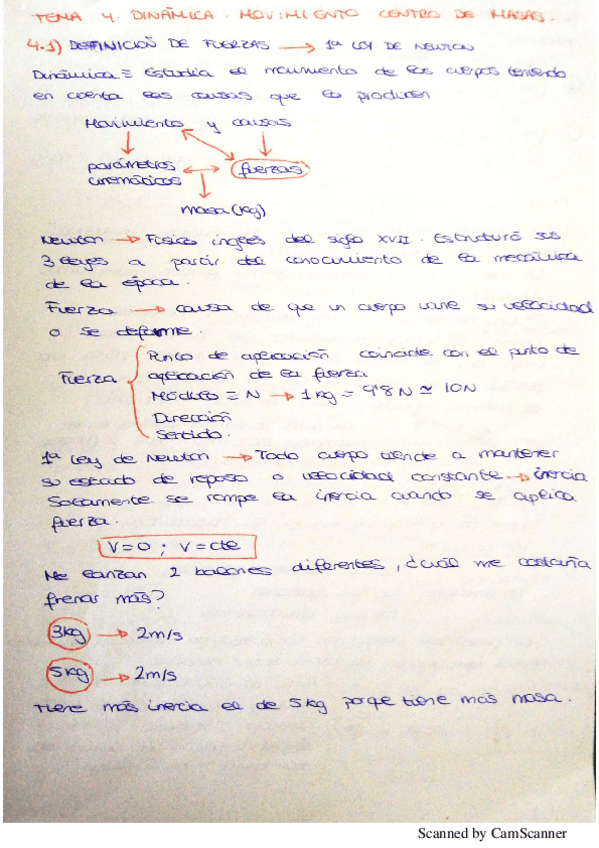 TEMA 4. DINÁMICA. MOVIMIENTO CENTRO DE MASAS.
4.1) DEFINICIÓN DE FUERZAS → 1ª LEY DE NEWTON
Dinámica = Estudia el movimiento de los cuerpos teniendo
en cuenta las causas que lo producen
Movimiento y causas
parámetros cinemáticos ↔ fuerzas
masa (kg)
Newton → Físico inglés del siglo XVII. Estructuró sus
3 leyes a partir del conocimiento de la mecánica
de la época.
Fuerza → causa de que un cuerpo varíe su velocidad
o se deforme.
Fuerza
Punto de aplicación coincide con el punto de
aplicación de la fuerza
Módulo = N → 1 kg = 9'8 N ≃ 10N
Dirección
Sentido.
1ª Ley de Newton → Todo cuerpo tiende a mantener
su estado de reposo o velocidad constante → inercia
Solamente se rompe la inercia cuando se aplica
fuerza.
V=0 ; V=cte
Me lanzan 2 balones diferentes, ¿cuál me costaría
frenar más?
3kg → 2m/s
5kg → 2m/s
Tiene más inercia el de 5kg porque tiene más masa.
Scanned by CamScanner